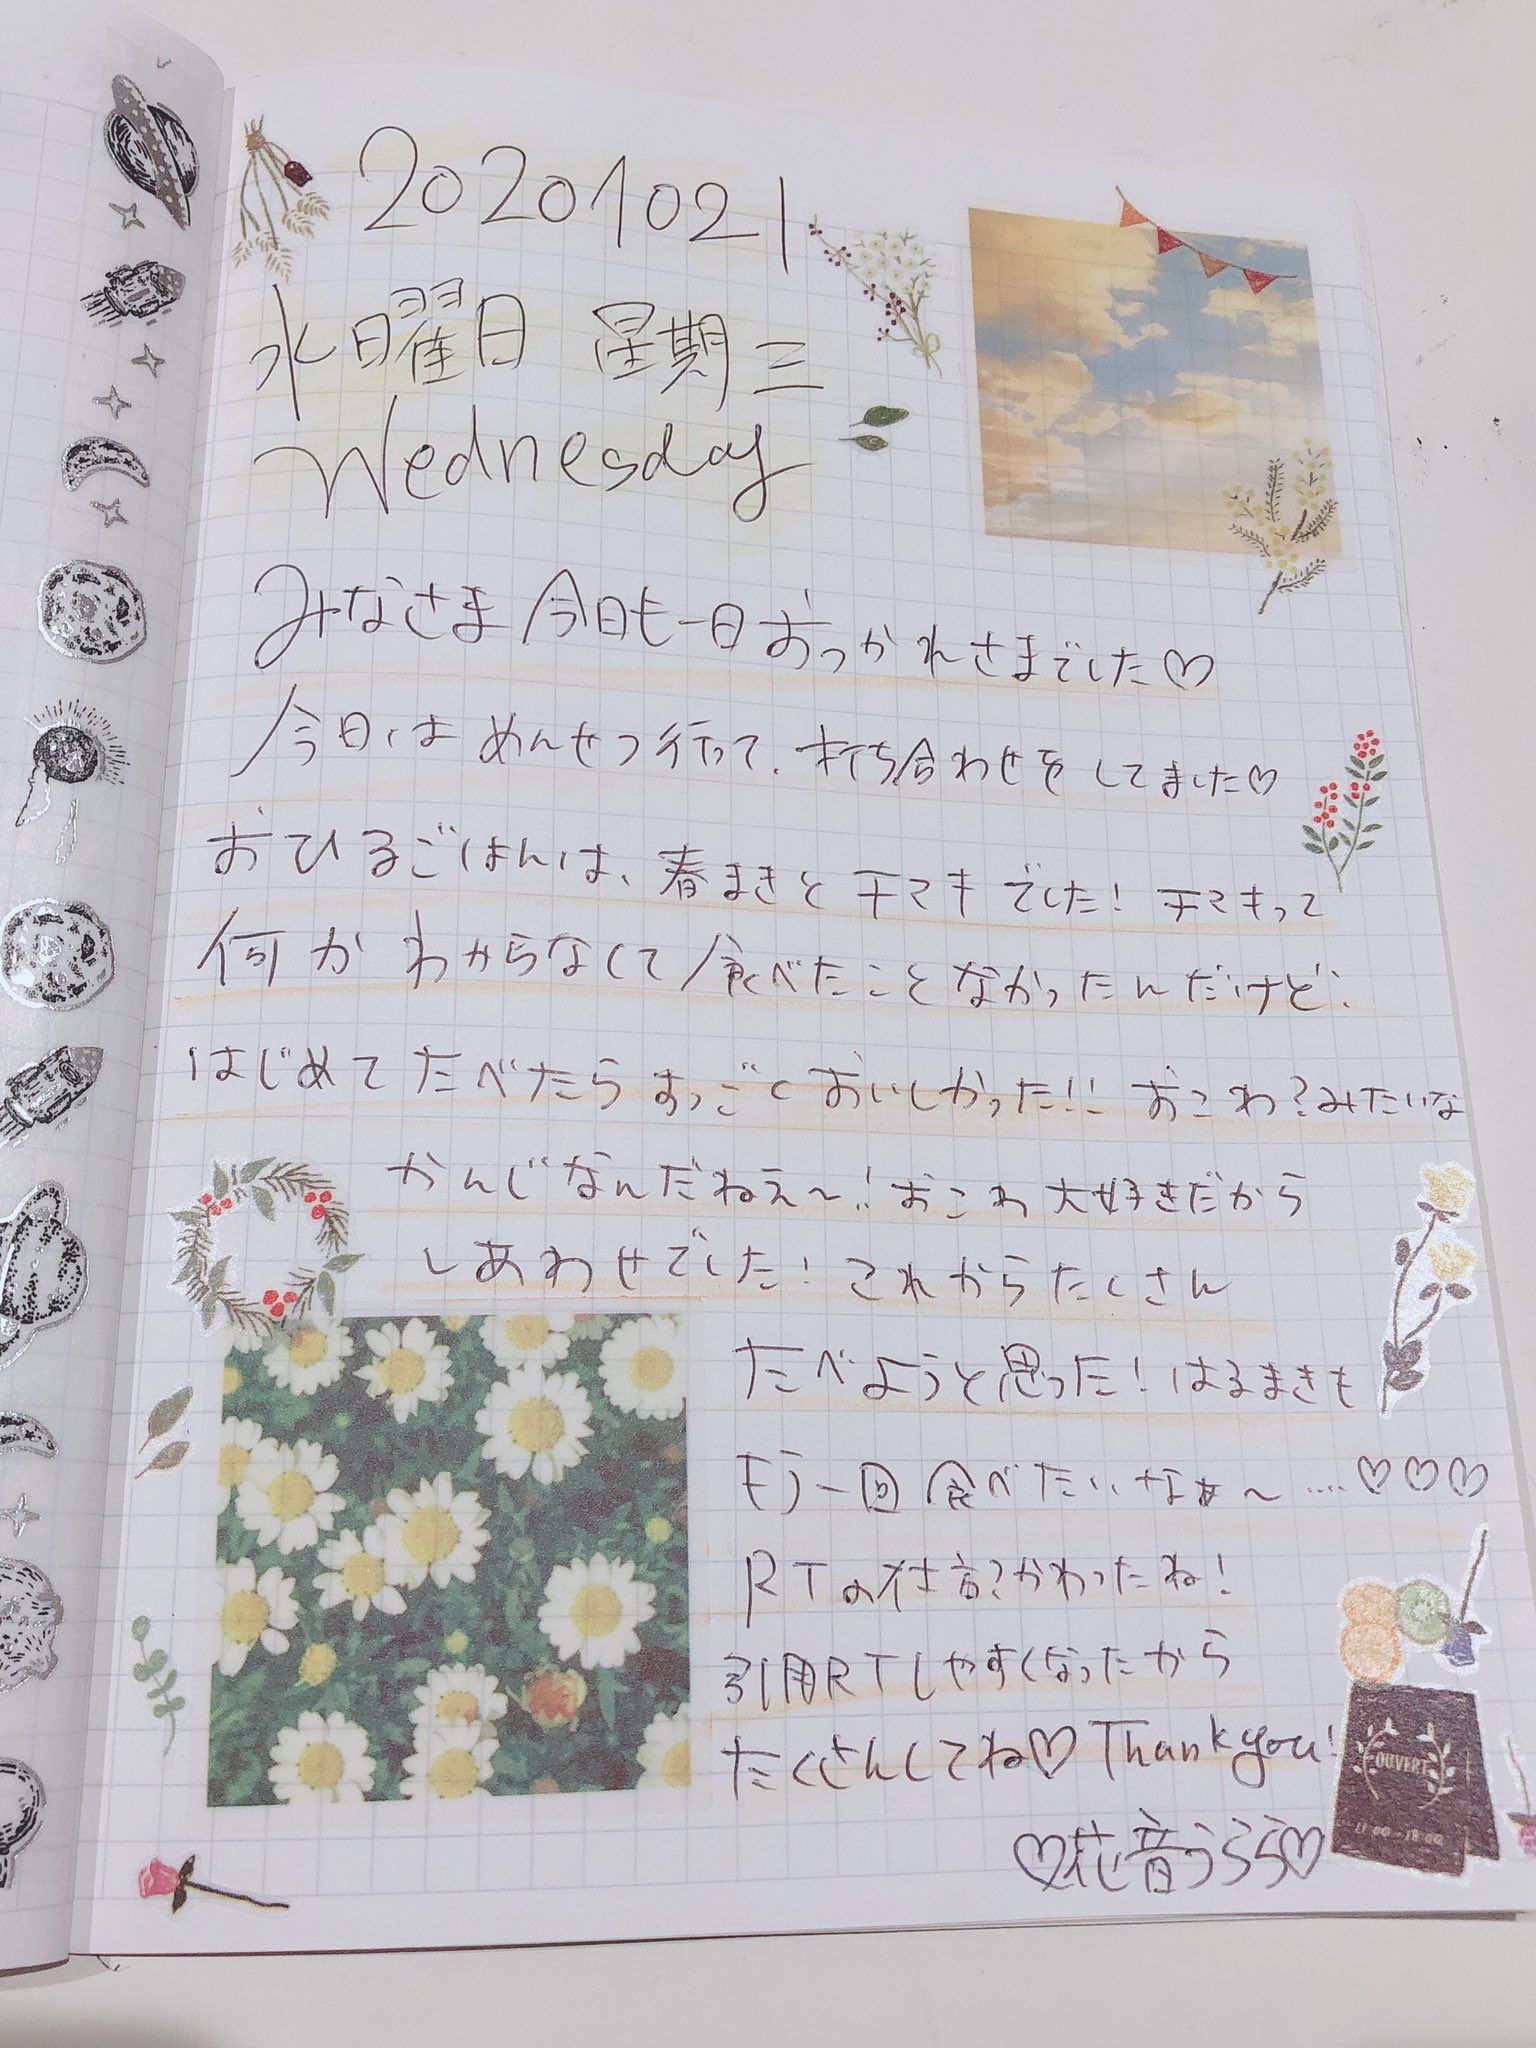 20201021
水曜日 星期三
Wednesday
みなさま今日も一日おつかれさまでした♡
今日はめんせつ行って、打ち合わせをしてました♡
おひるごはんは、春まきとチマキでした! チマキって
何かわからなくて食べたことなかったんだけど、
はじめてたべたらすっごくおいしかった!! おこわ?みたいな
かんじなんだねぇ〜! おこわ大好きだから
しあわせでした! これからたくさん
たべようと思った! はるまきも
もう一回食べたいなぁ〜....♡♡♡
RTの仕方?かわったね!
引用RTしやすくなったから
たくさんしてね♡ Thank you!
♡花音うらら♡
OUVERT
11:00-18:00